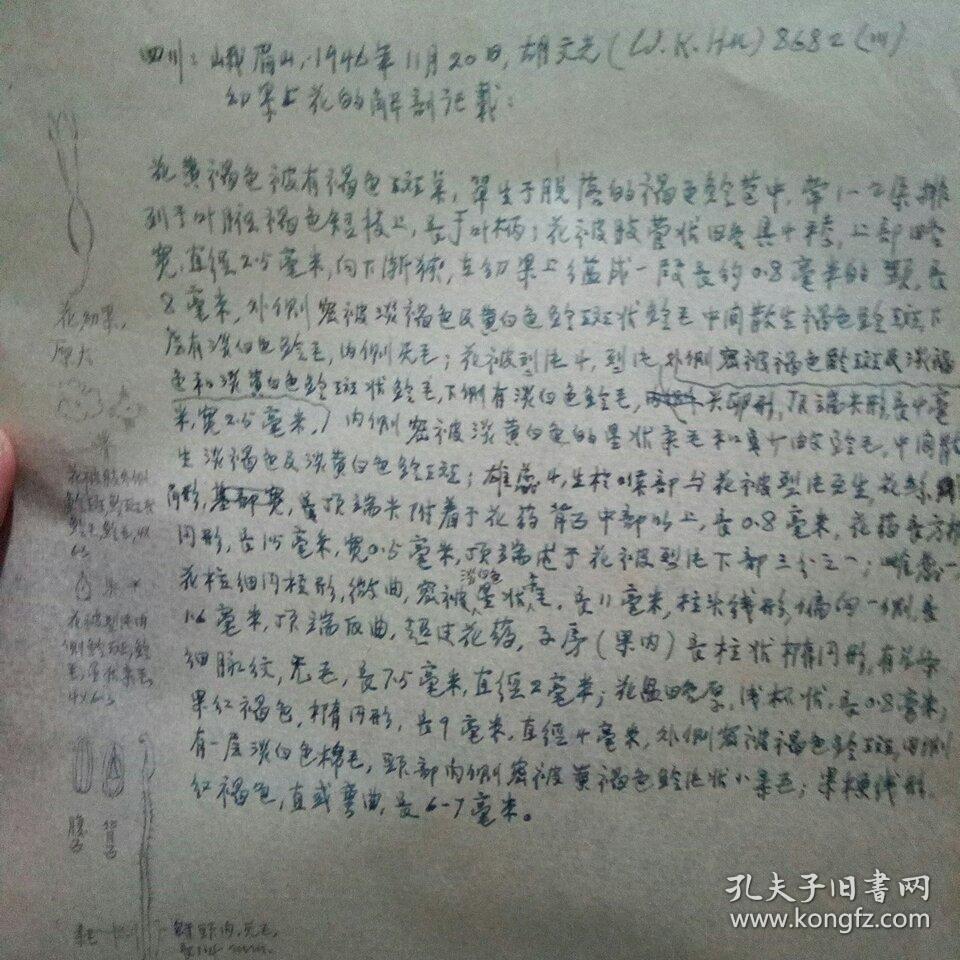 四川：峨眉山，1946年11月20日，胡文光（W.K.Hu）8682（川）
幼果与花的解剖记载：
花黄褐色被有褐色斑，单生于脱落的褐色鳞苞中，常1-2朵排
列于叶腋褐色短枝上，长于叶柄；花被肢管状略具4棱，上部略
宽，直径2.5毫米，向下渐狭，在幼果上缢成一段长约0.8毫米的颈，长
8毫米，外侧密被淡褐色及黄白色鳞斑状鳞毛中间散生褐色鳞斑，下
层有淡白色鳞毛，内侧无毛；花被裂片4，裂片外侧密被褐色鳞斑及淡褐
色和淡黄白色鳞斑状鳞毛，下侧有淡白色鳞毛，卵形，顶端尖形，长4毫
米，宽2.5毫米，内侧密被淡黄白色的星状柔毛和鳞毛，中间散
生淡褐色及淡黄白色鳞斑；雄蕊4，生于喉部与花被裂片互生，花丝
角形，基部宽，顶端尖附着于花药背面中部以上，长0.8毫米，花药长方椭
圆形，长1.5毫米，宽0.5毫米，顶端达于花被裂片下部三分之一；雌蕊一，
花柱细圆柱形，微曲，密被淡白色星状柔毛，长11毫米，柱头线形，偏向一侧，长
1.6毫米，顶端反曲，超过花药，子房（果内）长柱状椭圆形，有
细脉纹，无毛，长7.5毫米，直径2毫米；花盘略厚，浅杯状，长0.8毫米；
果红褐色，椭圆形，长9毫米，直径4毫米，外侧密被褐色鳞斑，内侧
有一层淡白色棉毛，颈部内侧密被黄褐色鳞片状小柔毛；果梗线形，
红褐色，直或弯曲，长6-7毫米。
花、幼果，
原大
花被肢外侧
花被裂片内
侧鳞斑，鳞
毛，星状柔毛，
4×63
腹面 背面
无毛，
孔夫子旧书网
www.kongfz.com